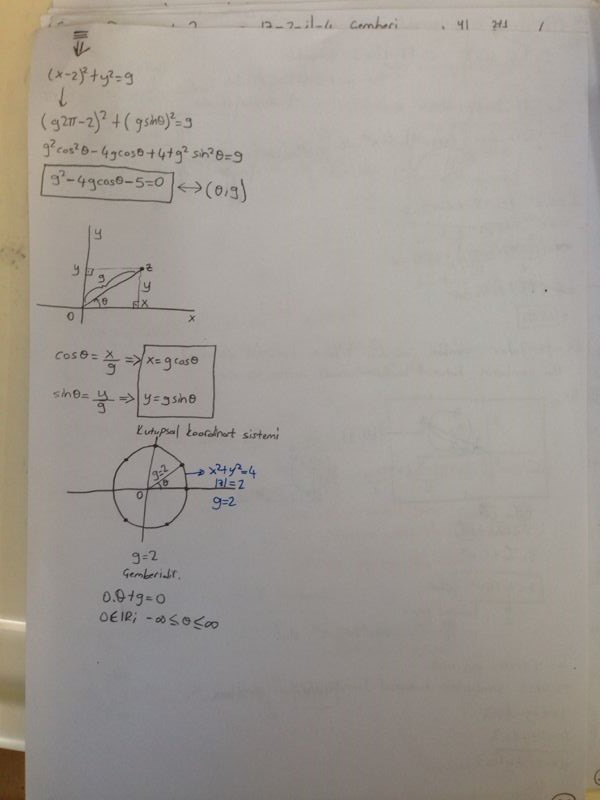 |z-2-i|=4 Çemberi
(x-2)²+y²=9
(g2π-2)²+(gsinθ)²=9
g²cos²θ-4gcosθ+4+g²sin²θ=9
g²-4gcosθ-5=0 ↔ (θ,g)
y
y g z
y
θ
O x x
cosθ=x/g ⇒ x=gcosθ
sinθ=y/g ⇒ y=gsinθ
Kutupsal koordinat sistemi
g=2 θ
O
x²+y²=4
|z|=2
g=2
g=2
Çemberidir.
0.θ+g=0
θ∈ℝ; -∞≤θ≤∞